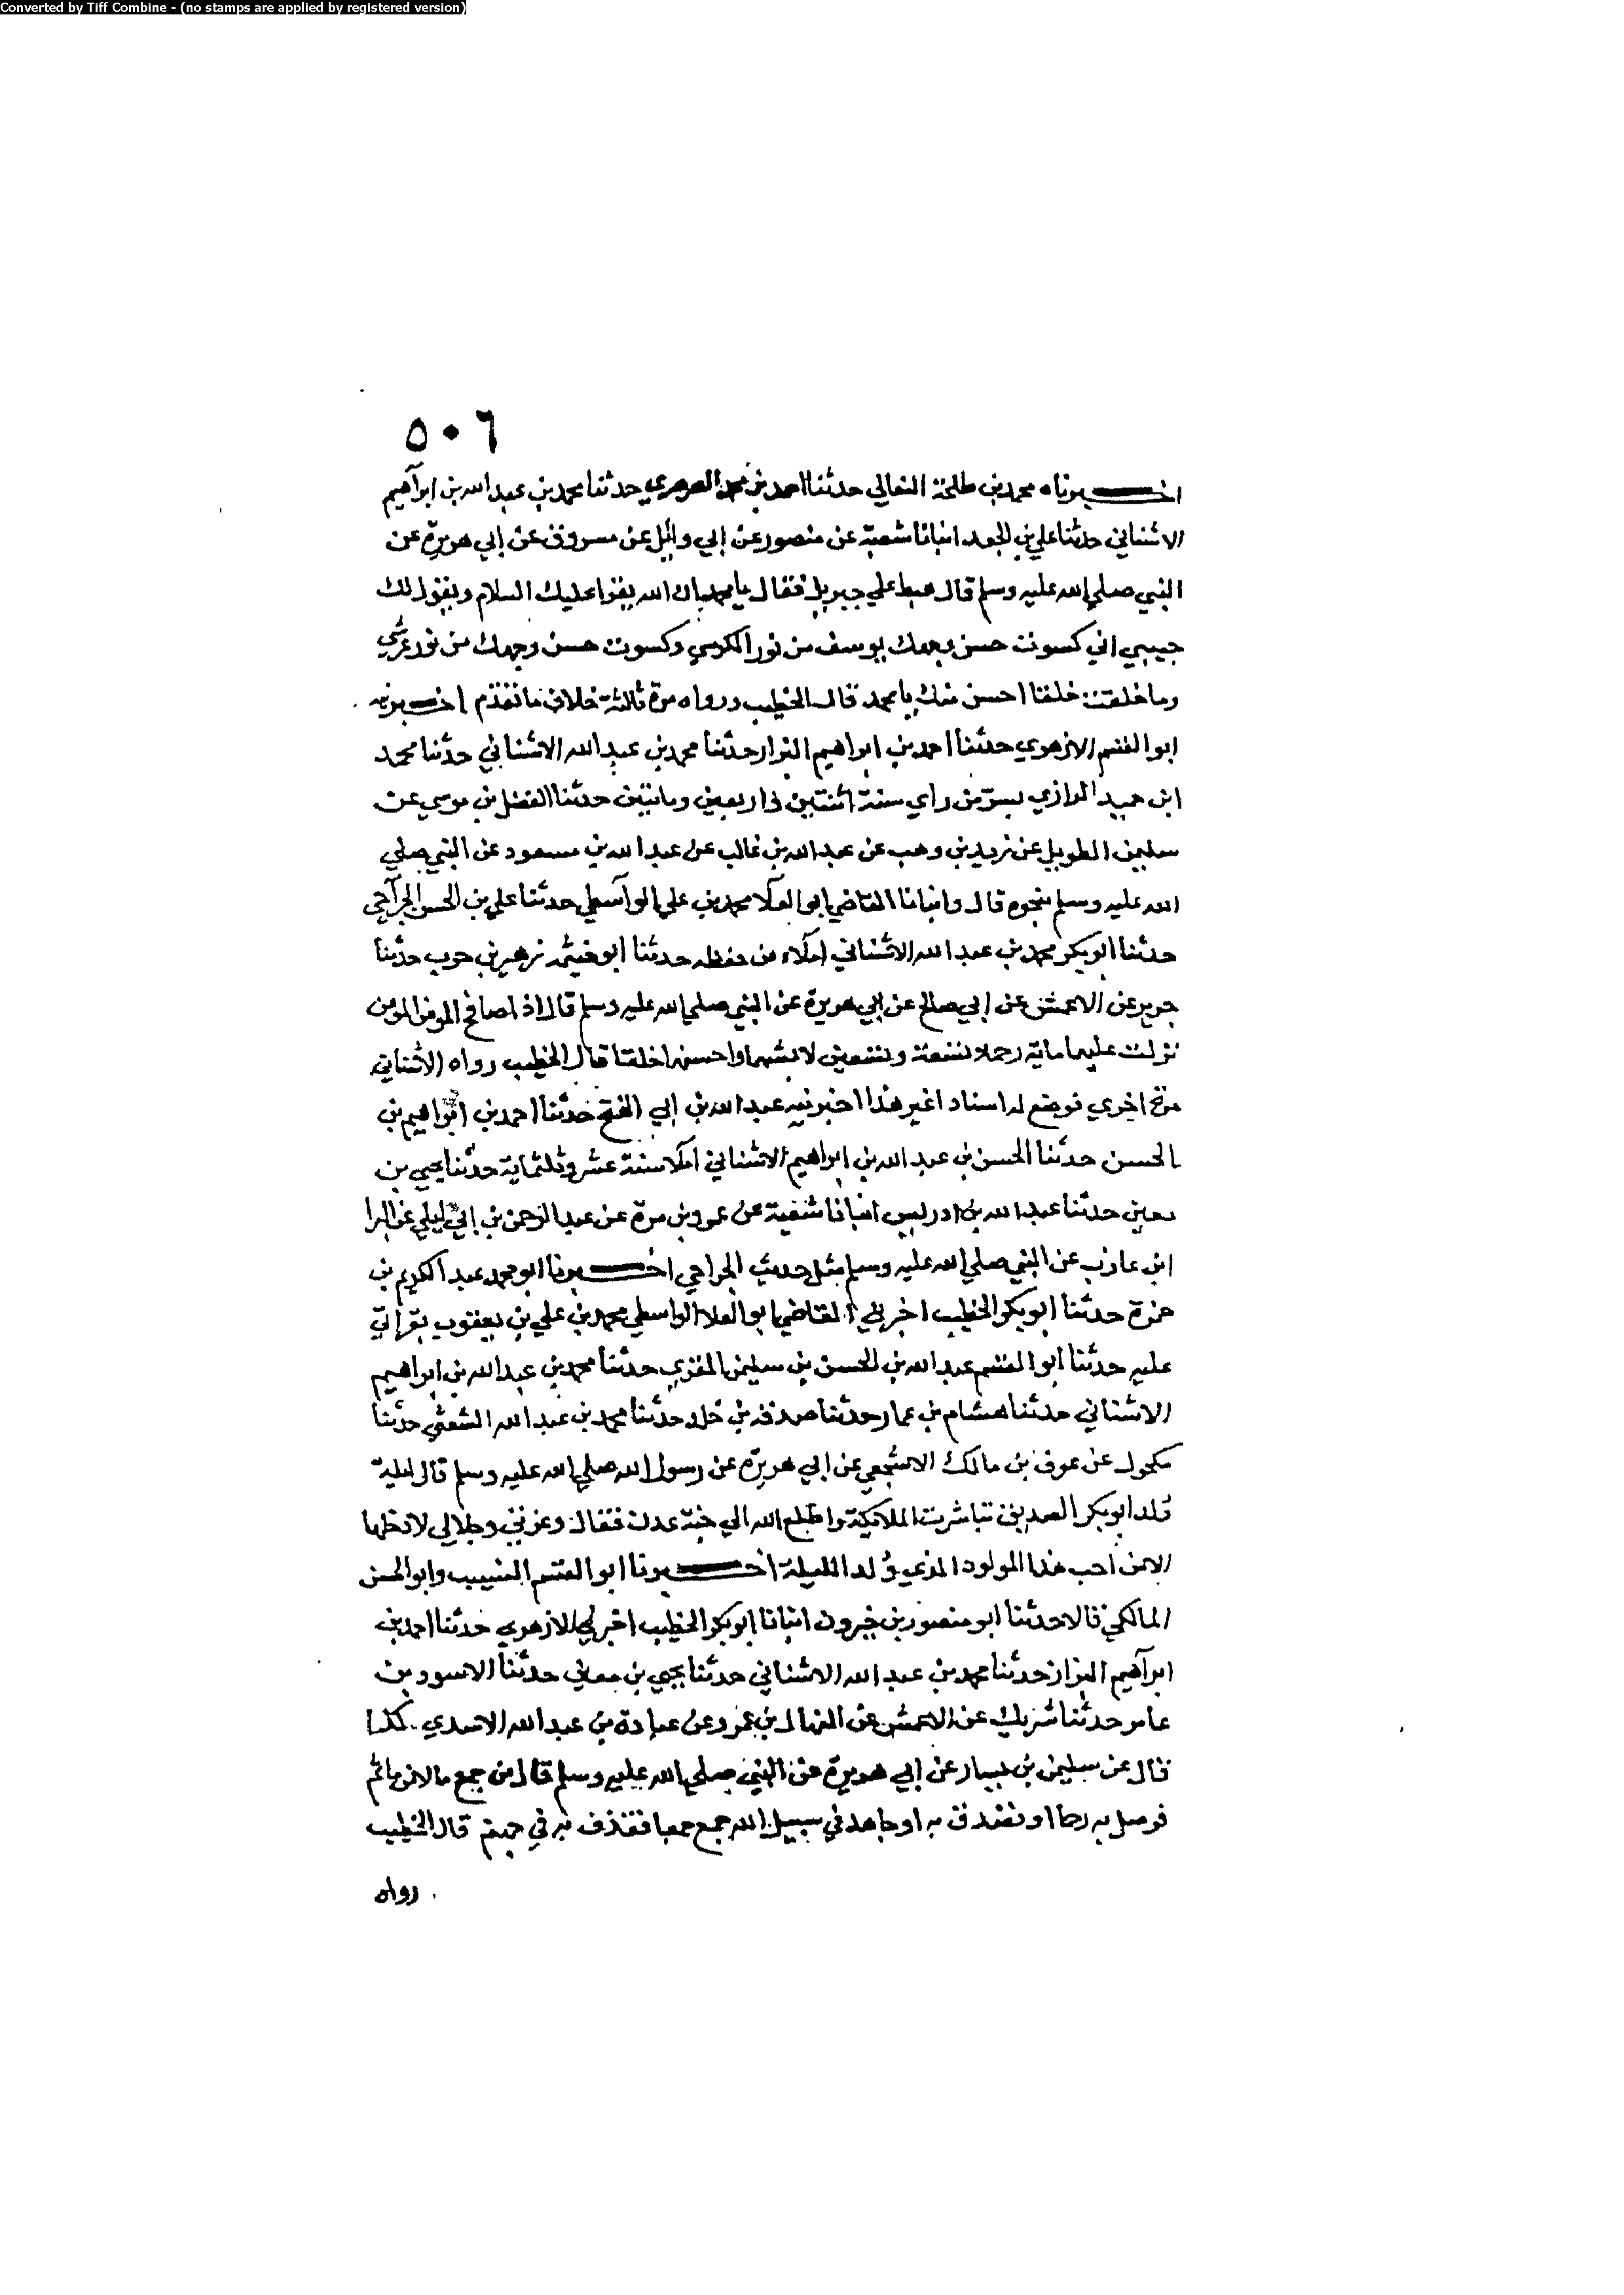 Converted by Tiff Combine - (no stamps are applied by registered version)
٥٠٦
اخبرناه محمد بن طلحة النعالي حدثنا احمد بن محمد الصرصري حدثنا محمد بن عبد الله بن ابراهيم
الاشناني حدثنا علي بن الجعد انبانا شعبة عن منصور عن ابي وائل عن مسروق عن ابي هريرة عن
النبي صلى الله عليه وسلم قال هبط علي جبريل فقال يا محمد ان الله يقرا عليك السلام ويقول لك
حبيبي اني كسوت حسن وجهك يوسف من نور الكرسي وكسوت حسن وجهك من نور عرشي
وما خلقت خلقا احسن منك يا محمد قال الخطيب ورواه مرة ثالثة خلاف ما تقدم اخبرنيه
ابو القسم الازهري حدثنا احمد بن ابراهيم البزار حدثنا محمد بن عبد الله الاشناني حدثنا محمد
ابن حميد الرازي بسر من راي سنة اثنتين واربعين ومايتين حدثنا الفضل بن موسي عن
سليمن الطويل عن زيد بن وهب عن عبد الله بن غالب عن عبد الله بن مسعود عن النبي صلي
الله عليه وسلم بنحوه قال وانبانا القاضي ابو العلا محمد بن علي الواسطي حدثنا علي بن الحسن الجراحي
حدثنا ابو بكر محمد بن عبد الله الاشناني املاء من حفظه حدثنا ابو خيثمه زهير بن حرب حدثنا
جرير عن الاعمش عن ابي صالح عن ابي هريرة عن النبي صلي الله عليه وسلم قال اذا صافح المومن المومن
نزلت عليهما ماية رحمة تسعة وتسعين لابشهما واحسنهما خلقا قال الخطيب رواه الاشناني
مرة اخري فوضع له اسنادا غير هذا اخبرنيه عبد الله بن ابي الفتح حدثنا احمد بن ابراهيم بن
الحسن حدثنا الحسن بن عبد الله بن ابراهيم الاشناني املا سنة عشر وثلثماية حدثنا يحيي بن
معين حدثنا عبد الله بن ادريس انبانا شعبة عن عمرو بن مرة عن عبد الرحمن بن ابي ليلي عن البرا
ابن عازب عن النبي صلي الله عليه وسلم مثل حديث الجراحي اخبرنا ابو محمد عبد الكريم بن
حمزة حدثنا ابو بكر الخطيب اخبرني القاضي ابو العلا الواسطي محمد بن علي بن يعقوب بقراتي
عليه حدثنا ابو القسم عبد الله بن الحسن بن سليمن المقري حدثنا محمد بن عبد الله بن ابراهيم
الاشناني حدثنا هشام بن عمار حدثنا صدقة بن خلد حدثنا محمد بن عبد الله الشعثي حدثنا
مكحول عن عوف بن مالك الاشجعي عن ابي هريرة عن رسول الله صلي الله عليه وسلم قال ليلة
ولد ابو بكر الصديق تباشرت الملائكة واطلع الله الي جنة عدن فقال وعزتي وجلالي لا دخلها
الا من احب هذا المولود الذي ولد الليلة اخبرنا ابو القسم النسيب وابو الحسن
المالكي قالا حدثنا ابو منصور بن خيرون انبانا ابو بكر الخطيب اخبرني الازهري حدثنا احمد بن
ابراهيم البزاز حدثنا محمد بن عبد الله الاشناني حدثنا يحيي بن معين حدثنا الاسود بن
عامر حدثنا شريك عن الاعمش عن المنهال بن عمرو عن عبادة بن عبد الله الاسدي كذا
قال عن سليمن بن يسار عن ابي هريرة عن النبي صلي الله عليه وسلم قال من جمع مالا من ماثم
فوصل به رحما او تصدق به او جاهد في سبيل الله جمع جمعا فقذف به في جهنم قال الخطيب
رواه